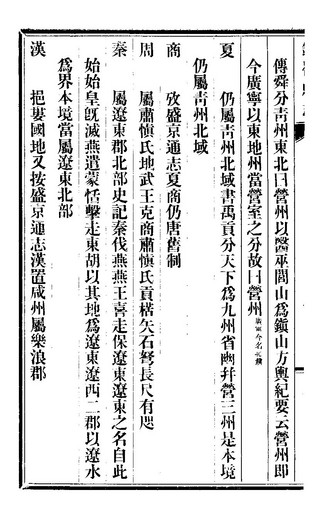 傳舜分靑州東北曰營州以醫巫閭山爲鎭山方輿紀要云營州卽
今廣寧以東地州當營室之分故曰營州廣寧今名北鎭
夏　仍屬靑州北域書禹貢分天下爲九州省幽幷營三州是本境
仍屬靑州北域
商　攷盛京通志夏商仍唐舊制
周　屬肅愼氏地武王克商肅愼氏貢楛矢石砮長尺有咫
秦　屬遼東郡北部史記秦伐燕燕王喜走保遼東遼東之名自此
始始皇旣滅燕遣蒙恬擊走東胡以其地爲遼東遼西二郡以遼水
爲界本境當屬遼東北部
漢　挹婁國地又按盛京通志漢置咸州屬樂浪郡